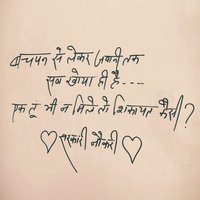 बचपन से लेकर जवानी तक
सब खोया ही है....
एक तू भी न मिले तो शिकायत कैसी?
सरकारी नौकरी